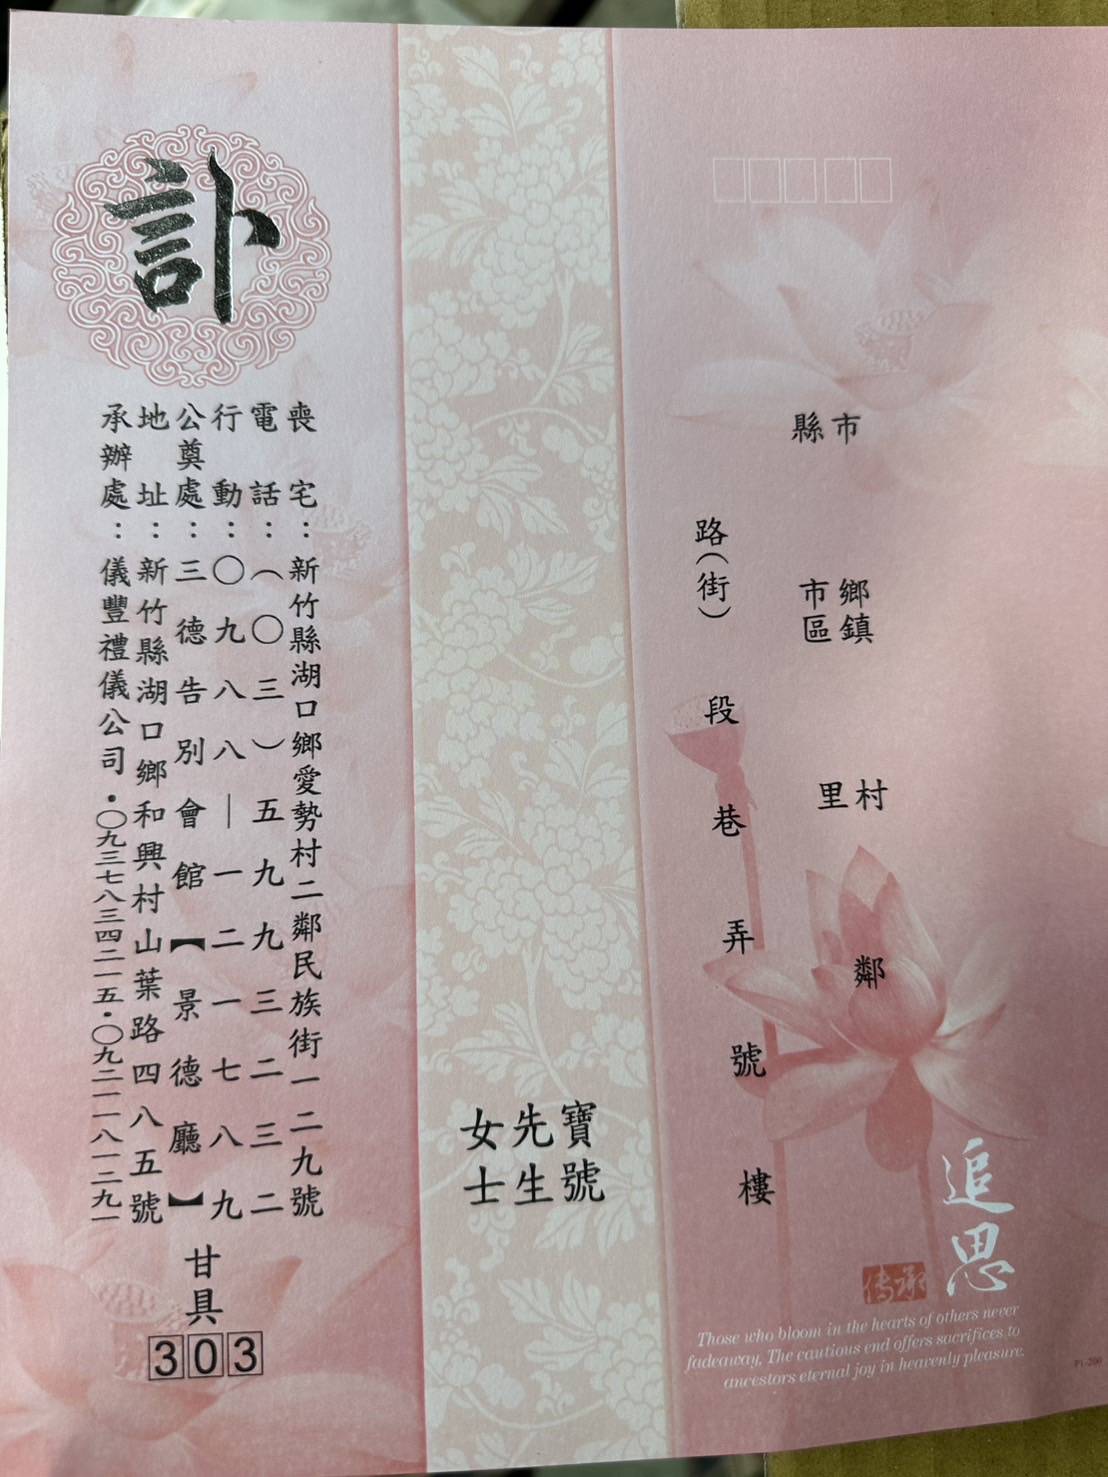 縣市
鄉鎮
市區
村
里
鄰
路(街)
段
巷
弄
號
樓
追思
傳承
Those who bloom in the hearts of others never
fadeaway, The cautious end offers sacrifices to
ancestors eternal joy in heavenly pleasure.
P1-200
寶號
先生
女士
訃
喪宅：新竹縣湖口鄉愛勢村二鄰民族街一二九號
電話：(〇三)五九九三二三二
行動：〇九八八—一二一七八九
公奠處：三德告別會館【景德廳】
地址：新竹縣湖口鄉和興村山葉路四八五號
承辦處：儀豐禮儀公司・〇九三七八三四二一五・〇九二一一八一二九一
甘具
303